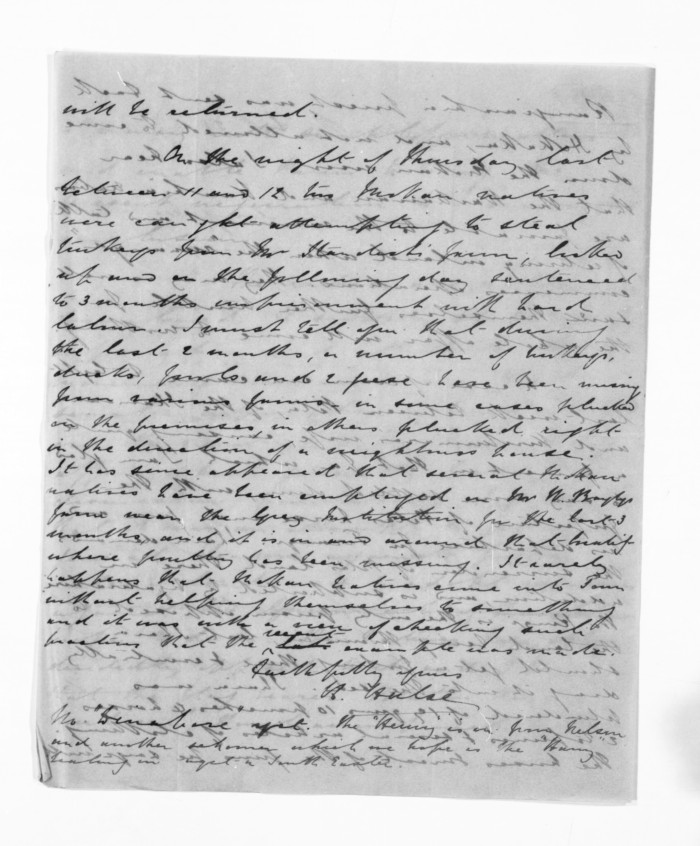 will be returned.
On the night of Thursday last
between 11 and 12 two Mokau natives
were caught attempting to steal
turkeys from Mr Standish's farm, locked
up and on the following day sentenced
to 3 months imprisonment with hard
labour. I must tell you that during
the last 2 months, a number of turkeys,
ducks, fowls and 2 geese have been missing
from various farms, in some cases plucked
on the premises, in others plucked right
in the direction of a neighbours house.
It has since appeared that several Mokau
natives have been employed on Mr W. Bayly's
farm near the Grey Institution for the last 3
months and it is in and around that locality
where poultry has been missing. It rarely
happens that Mokau natives come into Town
without helping themselves to something
and it was with a view of checking such
practices that the recent example was made.
Faithfully yours
H. Halse
No yet. The "Henry" is in from Nelson
and another schooner which we hope is the
beating in against a South Easter.